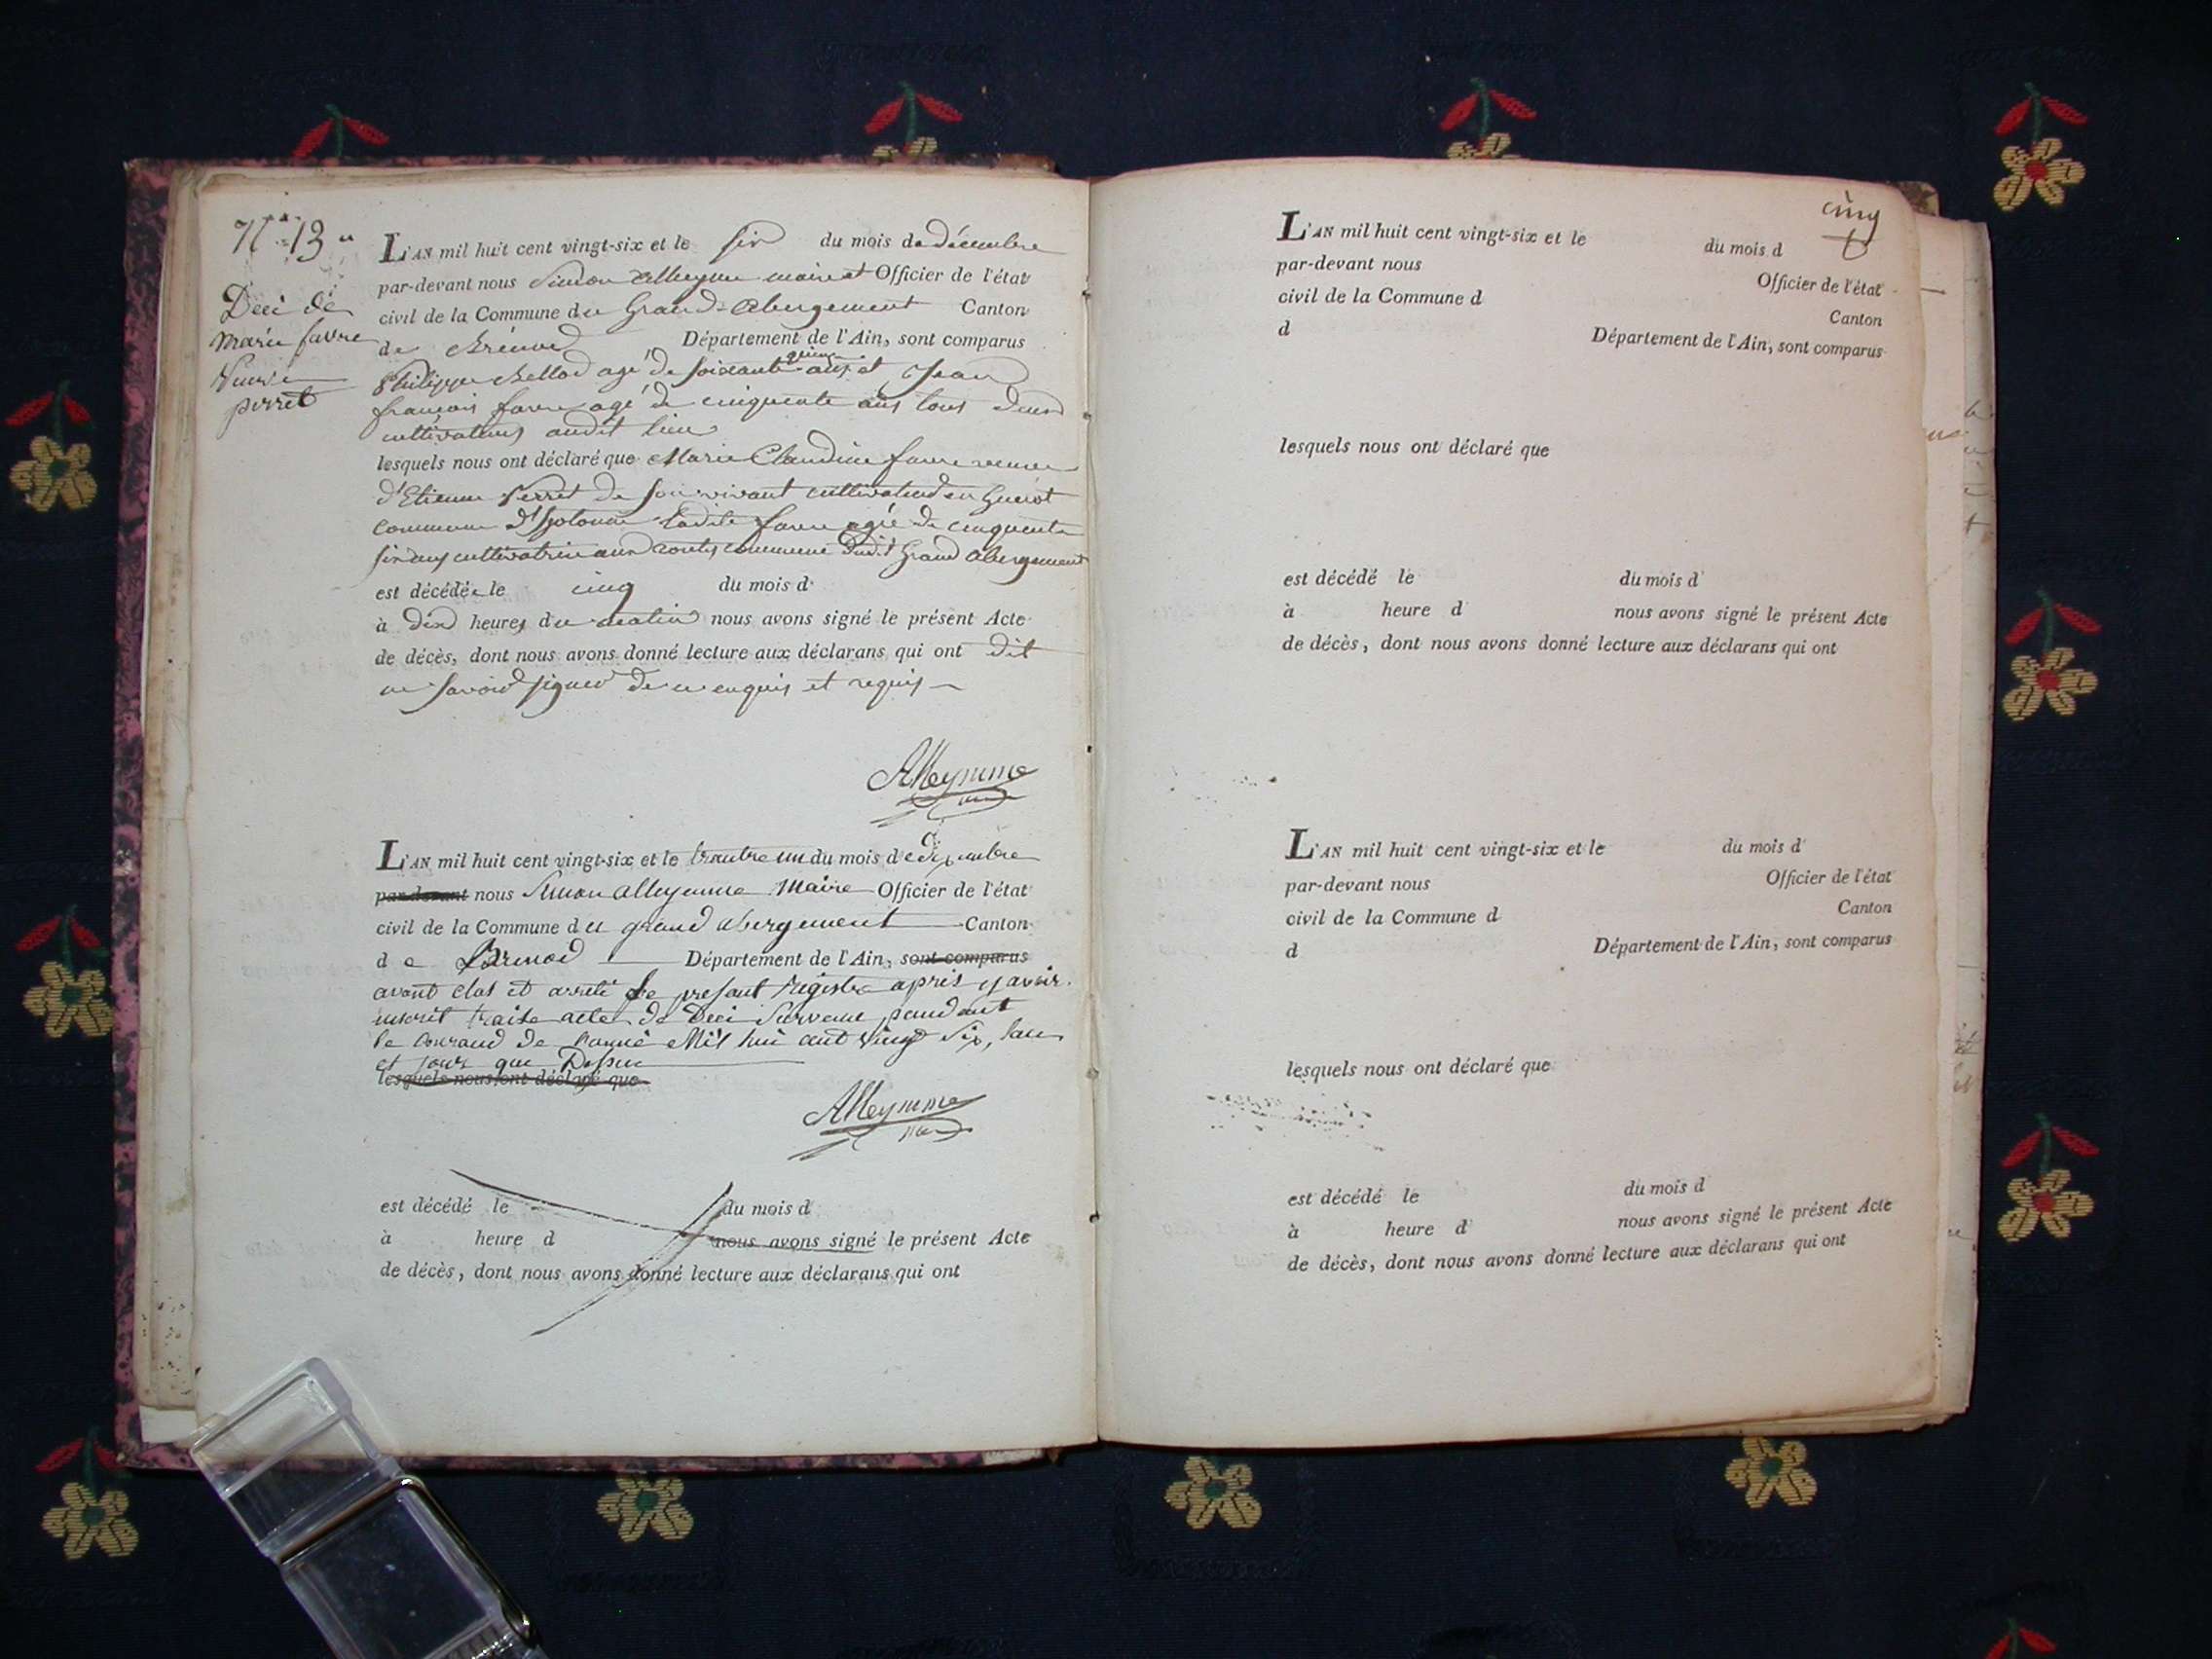 N° 13
Deci de
marie favre
veuve
perret
L'AN mil huit cent vingt-six et le six du mois de décembre
par-devant nous Simon Alleymme maire et Officier de l'état
civil de la Commune du Grand-Abergement Canton
de Brénod Département de l'Ain, sont comparus
Philippe Bellod agé de soixante quinze ans et Jean
françois favre agé de cinquante ans tous deux
cultivateurs audit lieu
lesquels nous ont déclaré que Marie Claudine favre veuve
d'Etienne Perret de son vivant cultivateur en
commune d'hotonne ladite favre agée de cinquante
six ans cultivatrice aux commune dudit Grand abergement
est décédée le cinq du mois d
à dix heures du matin nous avons signé le présent Acte
de décès, dont nous avons donné lecture aux déclarans qui ont dit
ne savoir signer de ce enquis et requis
Alleymme
L'AN mil huit cent vingt-six et le trantre un du mois de decembre
par-devant nous Simon alleymme Maire Officier de l'état
civil de la Commune du grand abergement Canton
de Brenod Département de l'Ain, sont comparus
avont clos et arreté le presant registre après y avoir
inscrit traise acte de Deci Survenu pandant
le courand de l'anné Mil hui cent vingt Six, lan
et jour que Dessu
lesquels nous ont déclaré que
Alleymme
est décédé le du mois d
à heure d nous avons signé le présent Acte
de décès, dont nous avons donné lecture aux déclarans qui ont
cinq
L'AN mil huit cent vingt-six et le du mois d
par-devant nous Officier de l'état
civil de la Commune d Canton
d Département de l'Ain, sont comparus
lesquels nous ont déclaré que
est décédé le du mois d
à heure d nous avons signé le présent Acte
de décès, dont nous avons donné lecture aux déclarans qui ont
L'AN mil huit cent vingt-six et le du mois d
par-devant nous Officier de l'état
civil de la Commune d Canton
d Département de l'Ain, sont comparus
lesquels nous ont déclaré que
est décédé le du mois d
à heure d nous avons signé le présent Acte
de décès, dont nous avons donné lecture aux déclarans qui ont